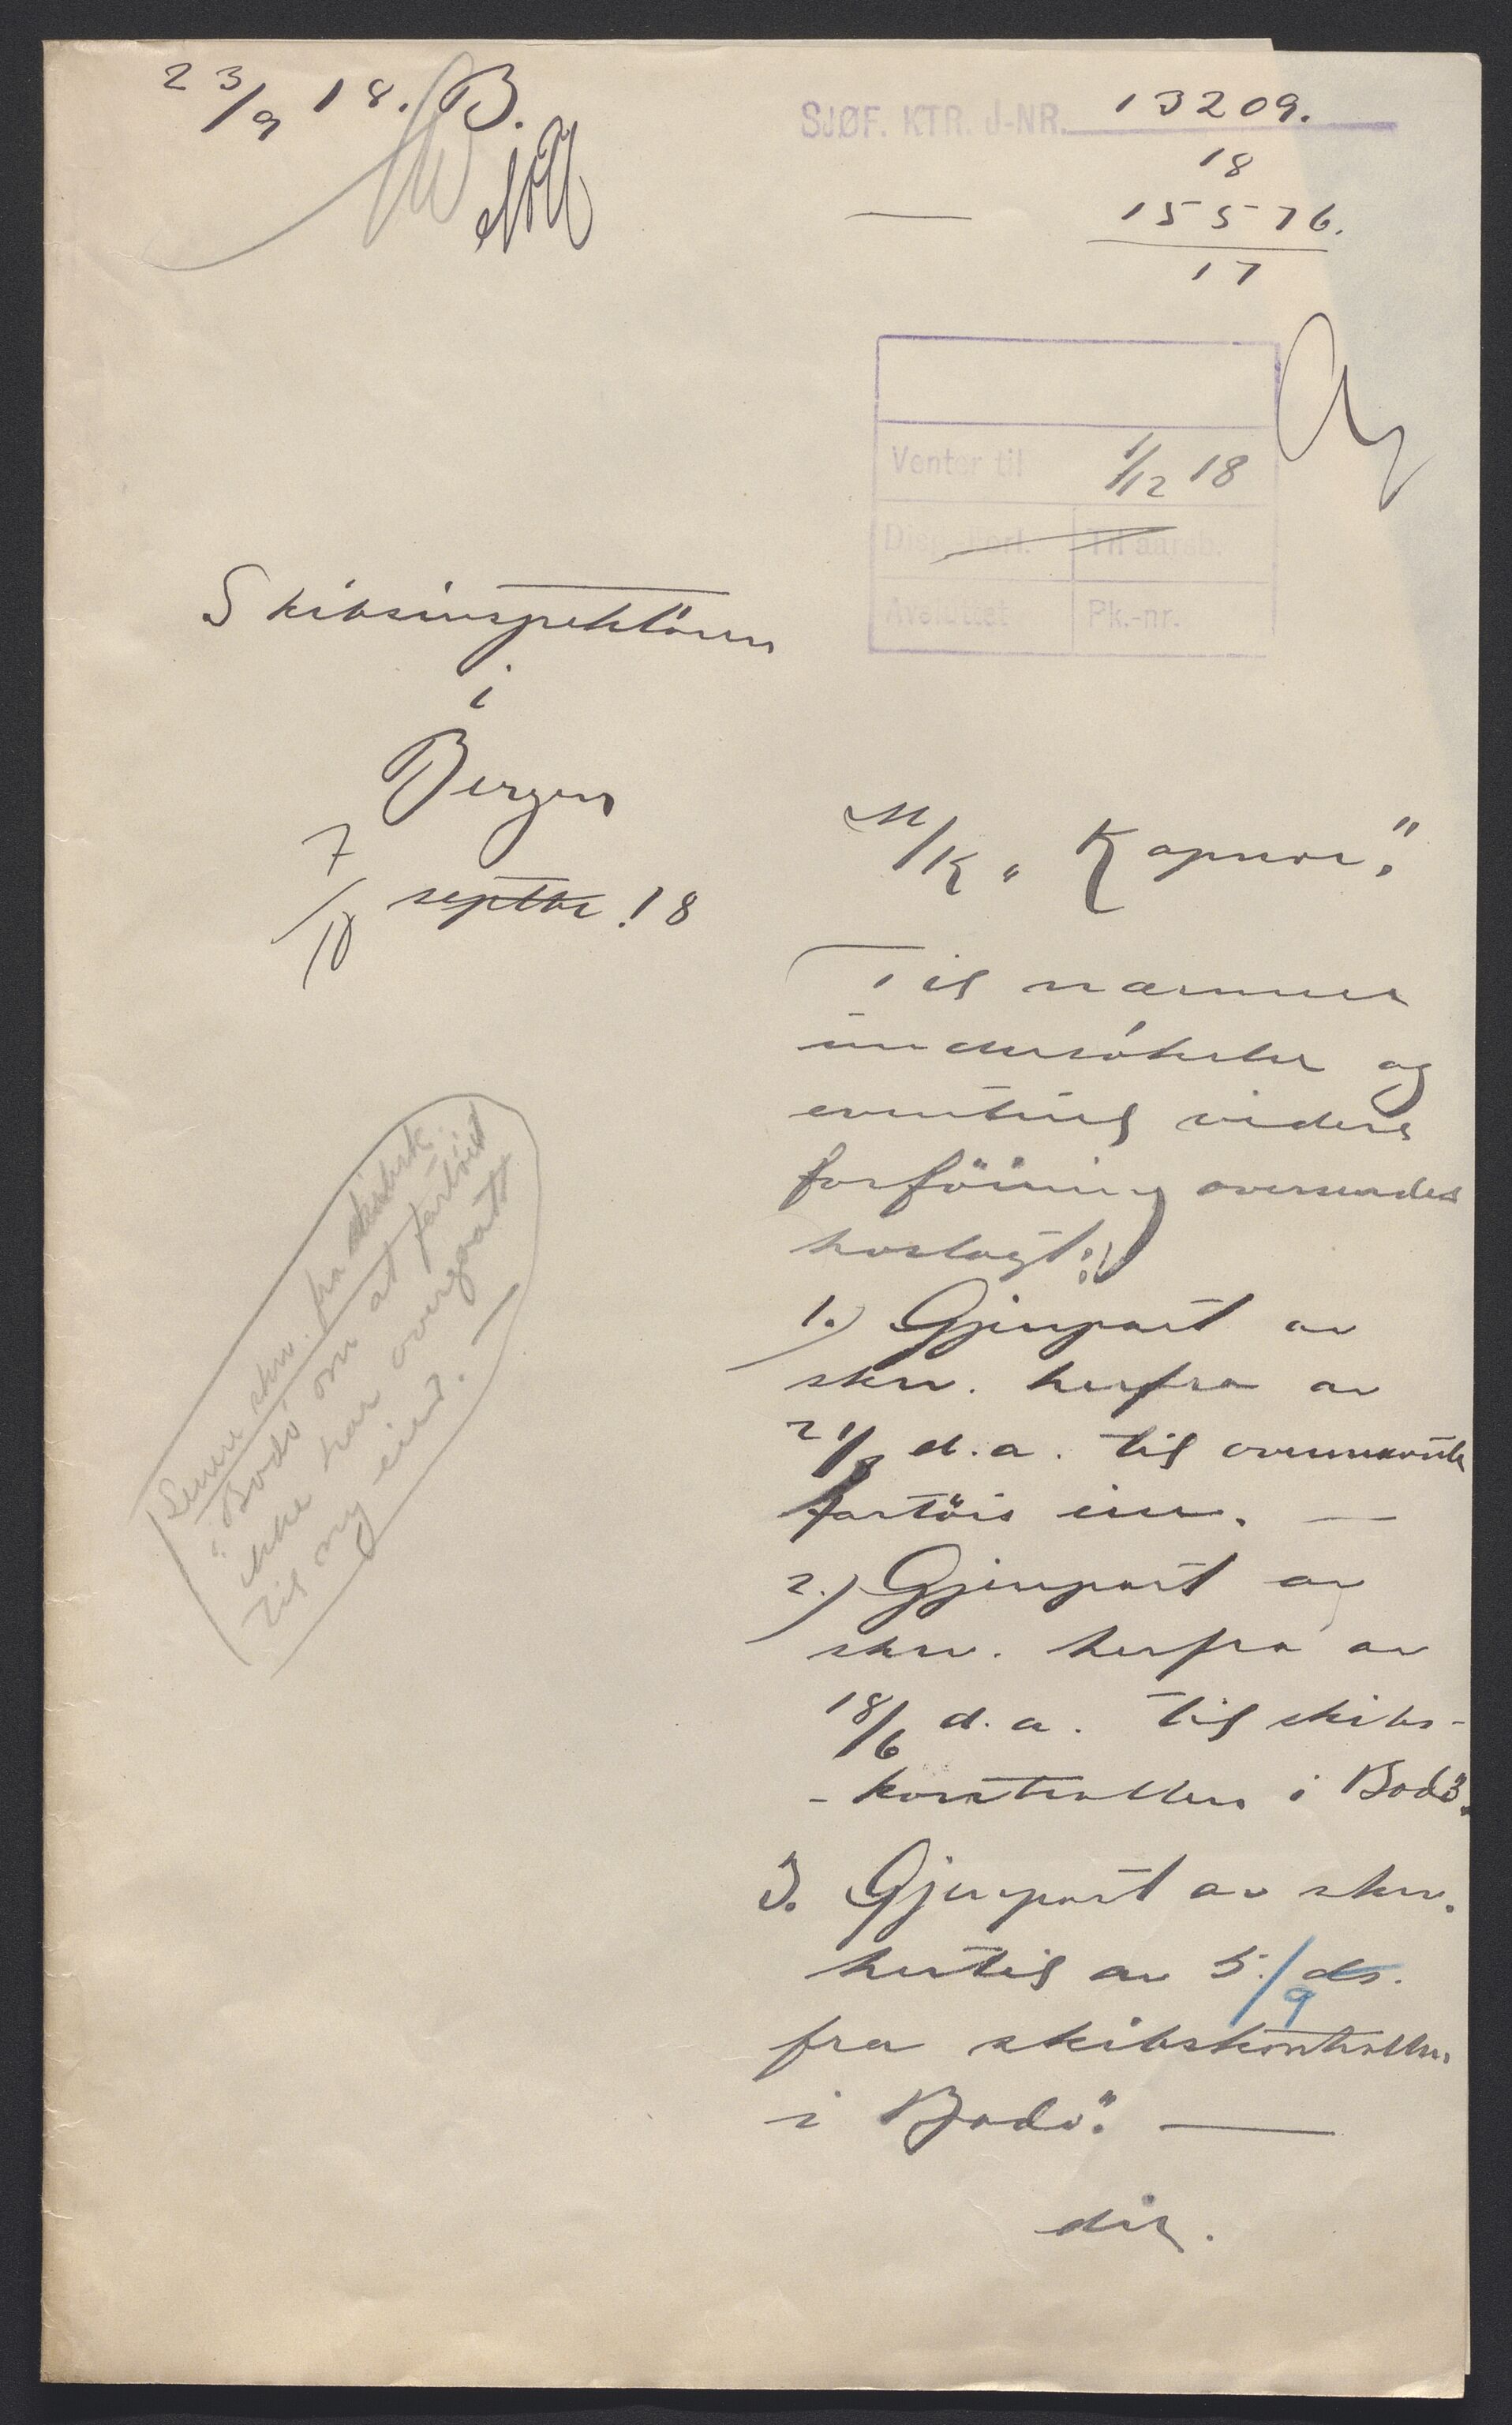 23/9 18. B.
SJØF. KTR. J-NR. 13209.
18
— 15576.
17
Venter til 1/12 18
Disp. Forl. Til aarsb.
Avsluttet Pk.-nr.
Skibsinspektören
i
Bergen
7/10 septbr. 18
M/K „Kapnor”.
Til nærmere
undersökelse og
eventuel videre
forföining oversendes
hoslagt:
1.) Gjenpart av
skr. herfra av
21/8 d.a. til ovennævnte
fartöis eier. —
2.) Gjenpart av
skr. herfra av
18/6 d.a. til skibs-
-kontrollen i Bodö.
3. Gjenpart av skr.
hertil av 5./9 ds.
fra skibskontrollen
i Bodö. —
dir.
skr. fra
i Bodö om at fartöiet
ikke har overgaat
til ny eier. —